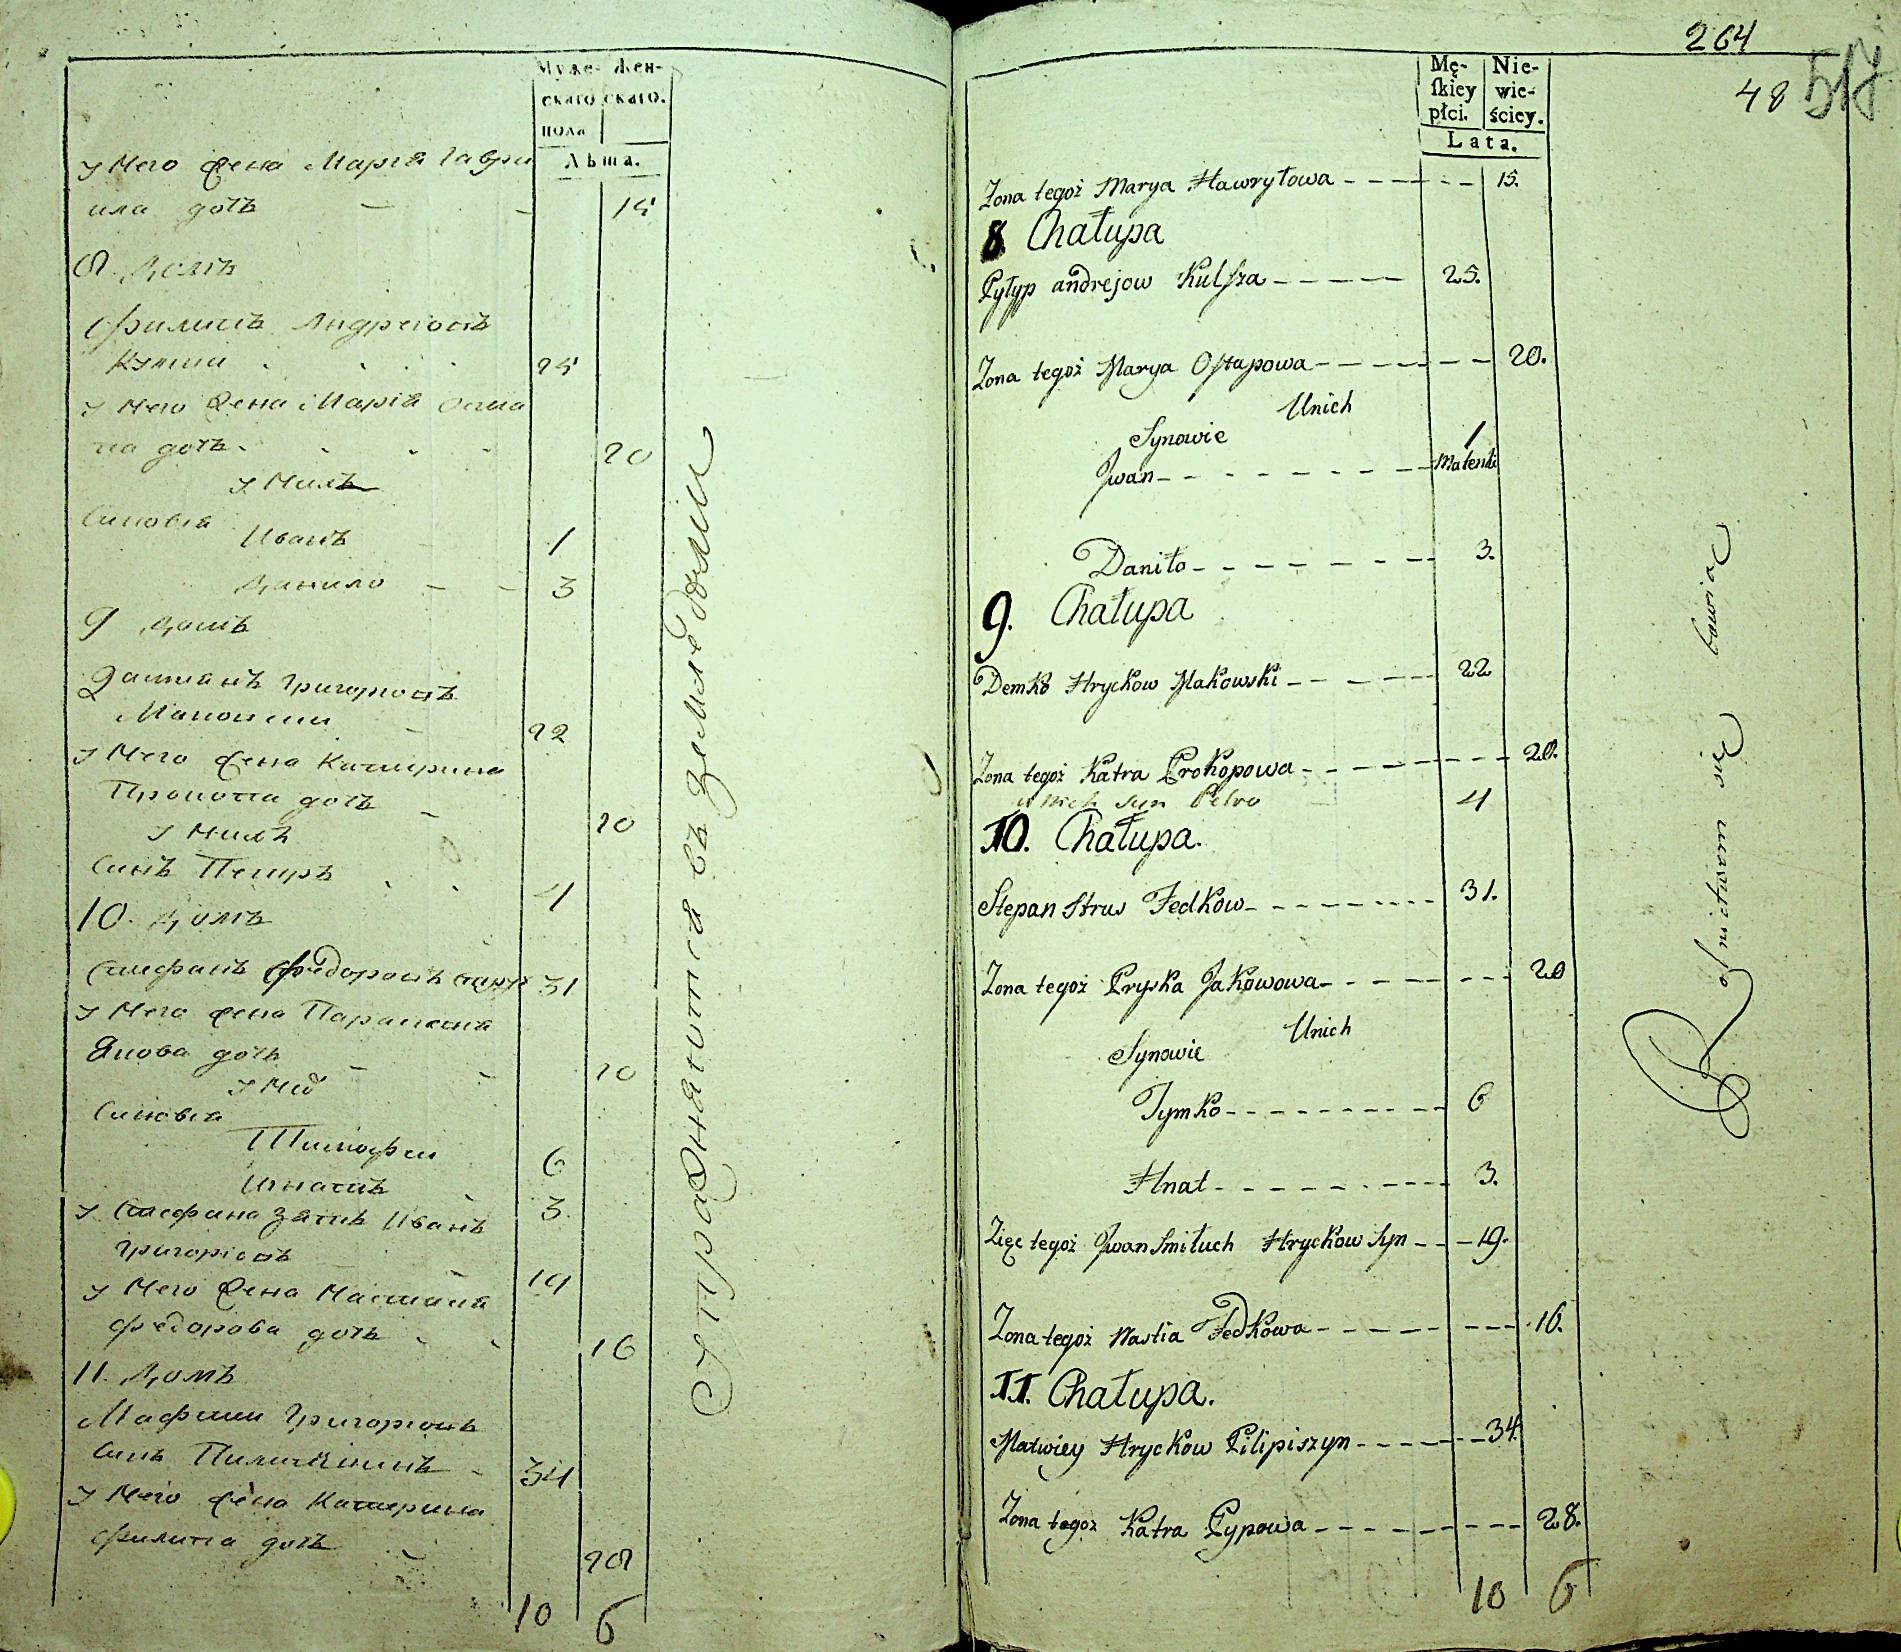 Муже- Жен-
скаго скаго.
пола
Лѣта.
У Него жена Мария Гаври
ила дочь - - 15
8. Домъ
Филипъ Андреювъ
25
У Него жена Марія Оста
па дочь. 20
У Нихъ
Синовья
Иванъ 1
Данило - - 3
9 Домъ
Григорювъ
22
У Него жена Катерина
Прокопа дочь - 20
У Нихъ
Синъ Петръ 4
10. Домъ
Стефанъ Федоровъ 31
У Него жена Параскева
Якова дочь - - 20
У Них
Синовья
Тимофеи 6
Игнатъ 3
У Стефана зять Иванъ
Григорювъ 19
У Него жена Настасия
Федорова дочь 16
11. Домъ
Григорювъ
Синъ 34
У Него жена Катерина
Филипа дочь 28
10 6
Упражняются въ земледелии
264
48
517
Mę- Nie-
skiey wie-
płci. ściey.
Lata.
Zona tegoż Marya Hawryłowa - - - - - - 15.
8. Chałupa
Pyłyp andrejow Kulsza - - - - - 25.
Zona tegoż Marya Ostapowa - - - - - - - 20.
Unich
Synowie
Jwan - - - - - - - - 1 Małenki
Daniło - - - - - - - - 3.
9. Chałupa
Demko Hryckow Makowski - - - - - 22
Zona tegoż Katra Prokopowa - - - - - - - - 20.
u nich syn Petro 4
10. Chałupa.
Stepan Strus Fedkow - - - - - - - - 31.
Zona tegoż Pryska Jakowowa - - - - - - - 20
Unich
Synowie
Tymko - - - - - - - - - 6
Hnat - - - - - - - - - 3.
Zięc tegoż Jwan Smiłuch Hryckow Syn - - - 19.
Zona tegoż Nastia Fedkowa - - - - - - - - 16.
11. Chałupa.
Matwiey Hryckow Pilipiszyn - - - - - - 34.
Zona tegoż Katra Pypowa - - - - - - - - - 28.
10 6
Rolnictwem się bawiąc